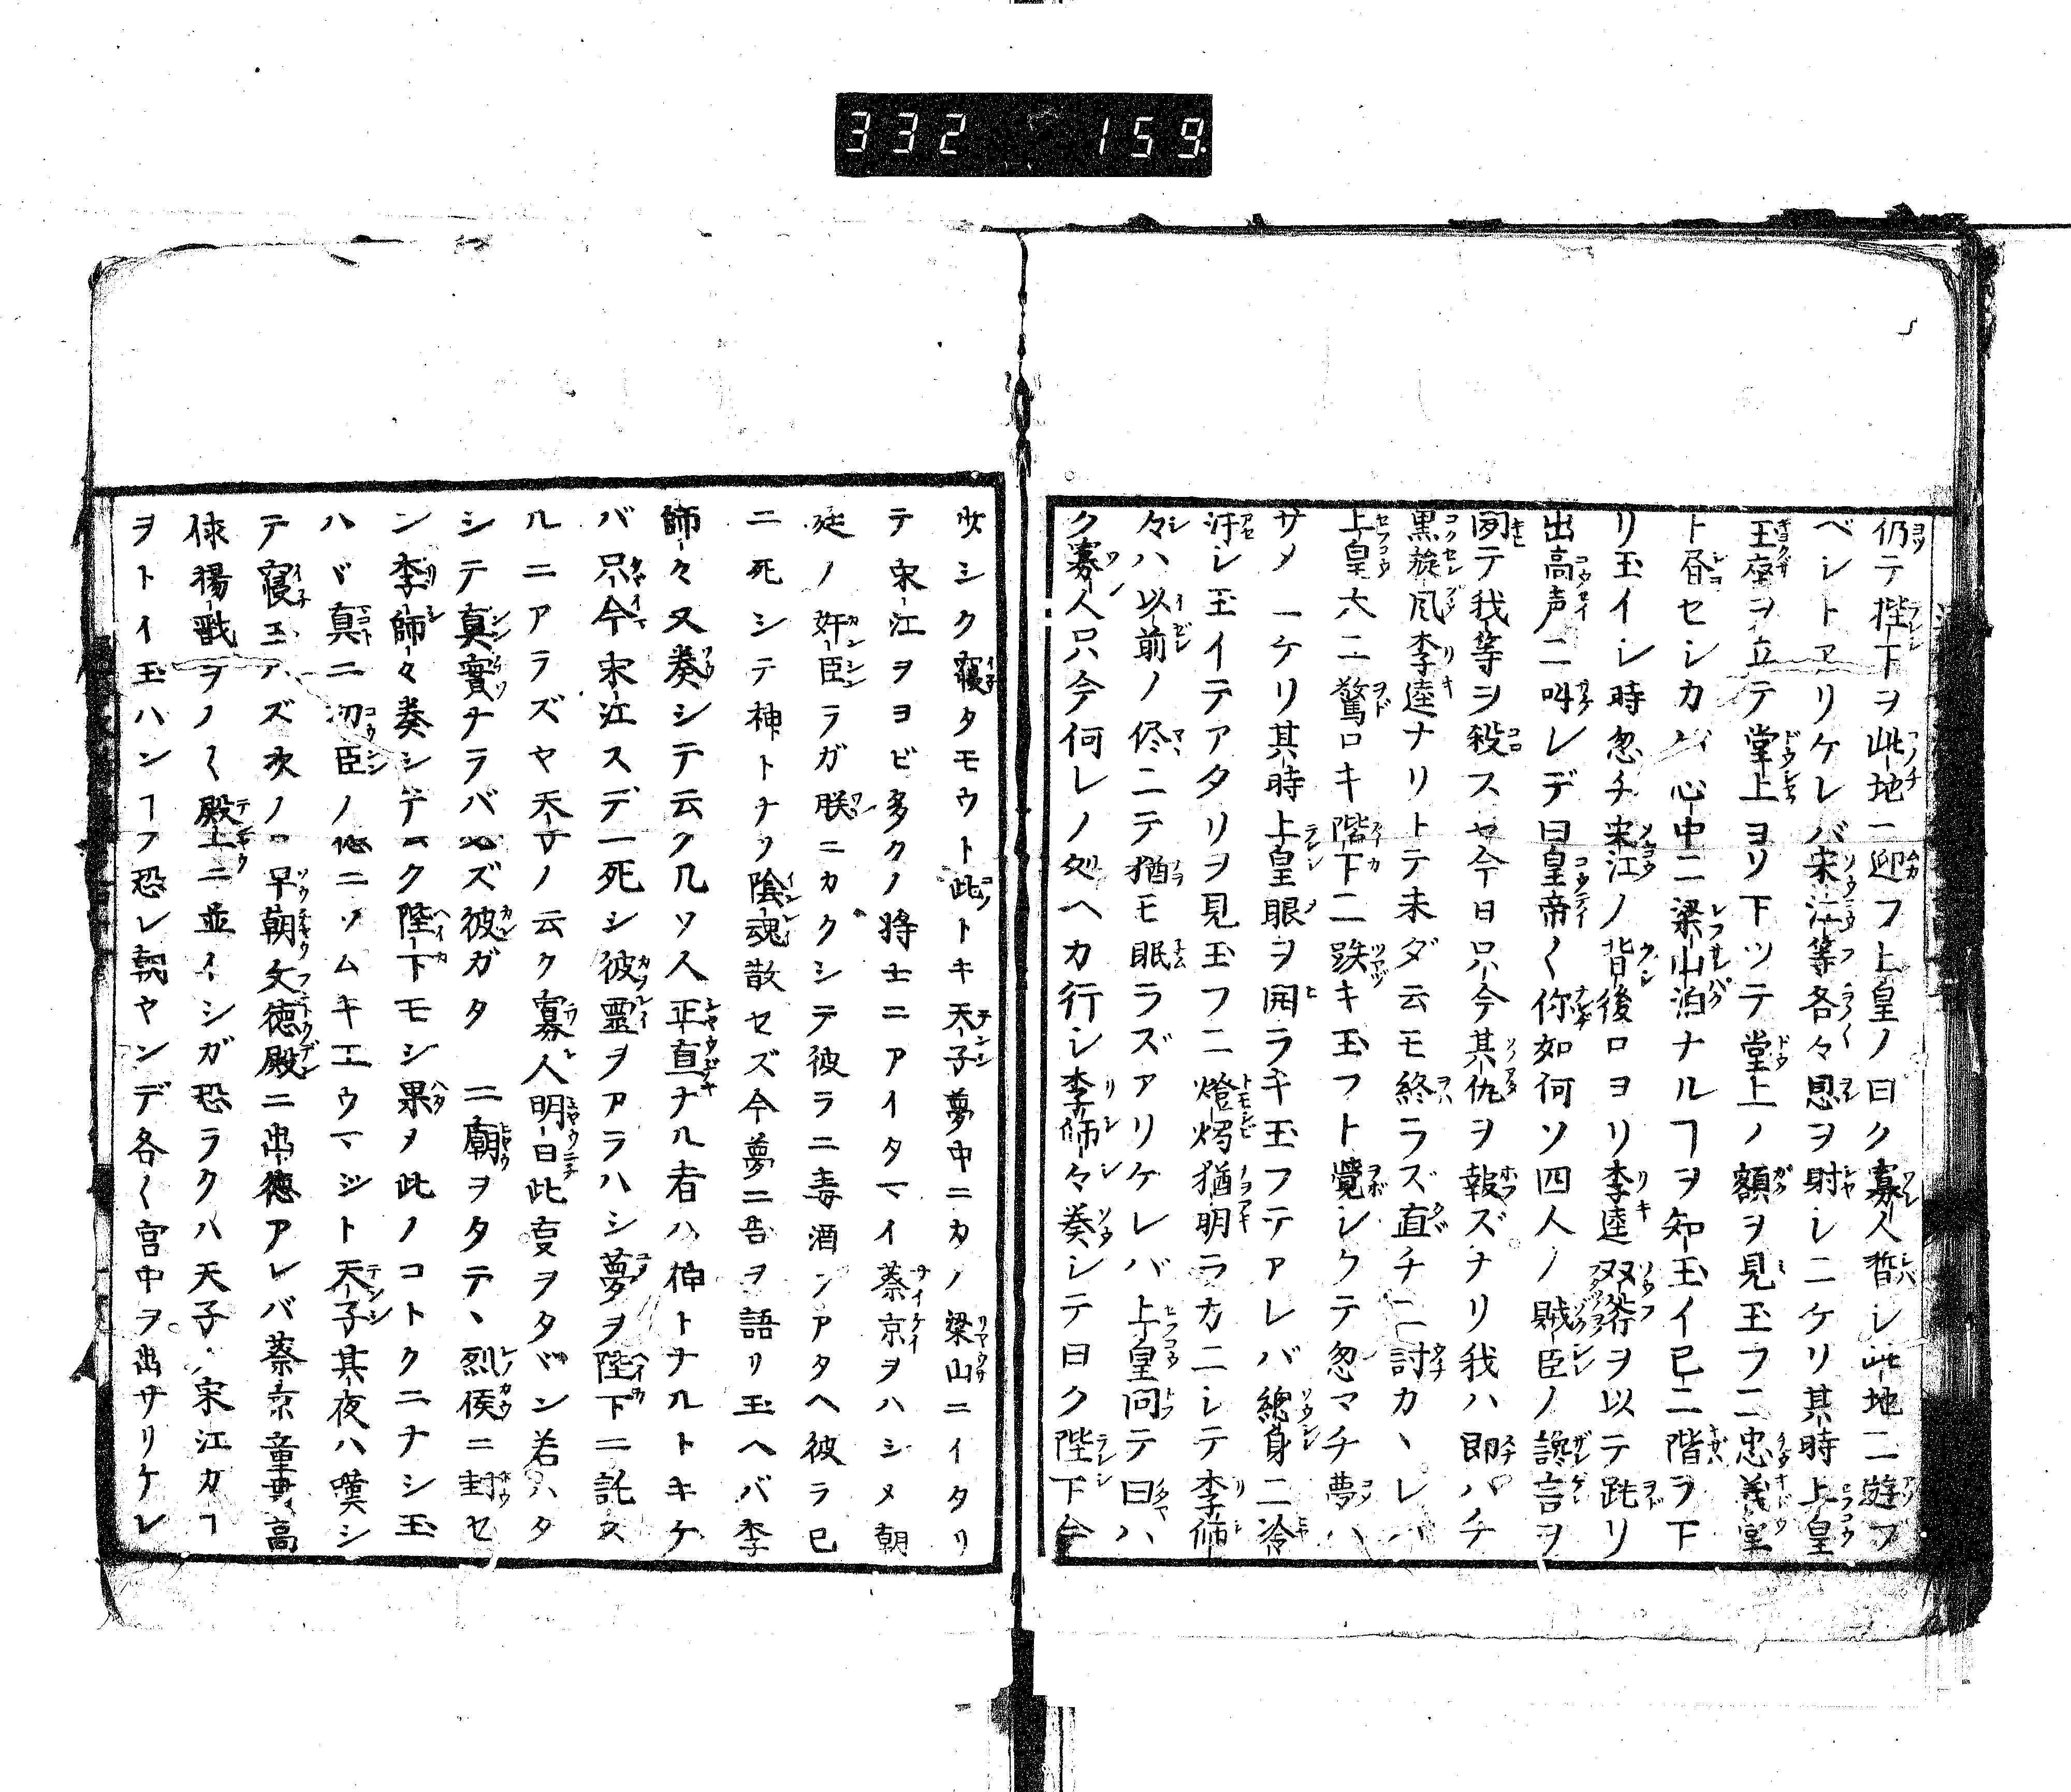 332 159
仍テ陛下ヲ此地ニ迎フ上皇ノ曰ク寡人暫シ此地ニ遊フ
ベシトアリケレバ宋江等各々恩ヲ射シニケリ其時上皇
玉座ヲ立テ堂上ヨリ下ツテ堂上ノ額ヲ見玉フニ忠義堂
ト昏セシカバ心中ニ梁山泊ナルヿヲ知玉イ已ニ階ヲ下
リ玉イシ時忽チ宋江ノ背後ロヨリ李逵双斧ヲ以テ跳リ
出高声ニ叫レデ曰皇帝〱你如何ソ四人ノ賊臣ノ讒言ヲ
聞テ我等ヲ殺スヤ今日只今其仇ヲ報ズナリ我ハ即ハチ
黒旋風李逵ナリトテ未ダ云モ終ラズ直チニ討カヽレバ
上皇大ニ驚ロキ階下ニ跌キ玉フト覺シクテ忽マチ夢ハ
サメ一ケリ其時上皇眼ヲ開ラキ玉フテアレバ總身ニ冷
汗シ玉イテアタリヲ見玉フニ燈燭猶明ラカニシテ李師
々ハ以前ノ侭ニテ猶モ眠ラズアリケレバ上皇問テ曰ハ
ク寡人只今何レノ処ヘカ行シ李師々奏シテ曰ク陛下今
少シク寢タモウト此トキ天子夢中ニカノ梁山ニイタリ
テ宋江ヲヨビ多クノ將士ニアイタマイ蔡京ヲハシメ朝
廷ノ奸臣ラガ朕ニカクシテ彼ラニ毒酒ンアタヘ彼ラ已
ニ死シテ神トナリ陰魂散セズ今夢ニ吿ヲ語リ玉ヘバ李
師々又奏シテ云ク凡ソ人正直ナル者ハ神トナルトキケ
バ只今宋江スデニ死シ彼靈ヲアラハシ夢ヲ陛下ニ託ス
ルニアラズヤ天子ノ云ク寡人明日此叓ヲタヾン若ハタ
シテ真實ナラバ必ズ彼ガタ ニ廟ヲタテヽ烈侯ニ封セ
ン李師々奏シテ曰ク陛下モシ果メ此ノコトクニナシ玉
ハヾ真ニ功臣ノ心ニソムキエウマジト天子其夜ハ嘆シ
テ寢玉ハズ次ノ日早朝文徳殿ニ出徳アレバ蔡京童貫高
俅楊戩ヲノ〱殿上ニ並イシガ恐ラクハ天子宋江カヿ
ヲトイ玉ハンヿフ恐レ朝ヤンデ各〱宮中ヲ出サリケレ